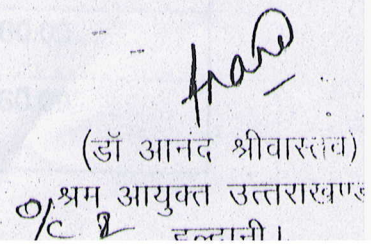 (डॉ आनंद श्रीवास्तव)
श्रम आयुक्त उत्तराखण्ड
o/c
हल्द्वानी।